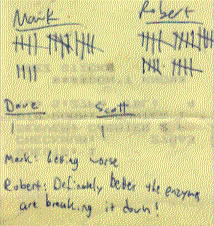 Mark Robert
Dave Scott
1 1
Mark: Getting worse
Robert: Definately better the enzymes
are breaking it down!